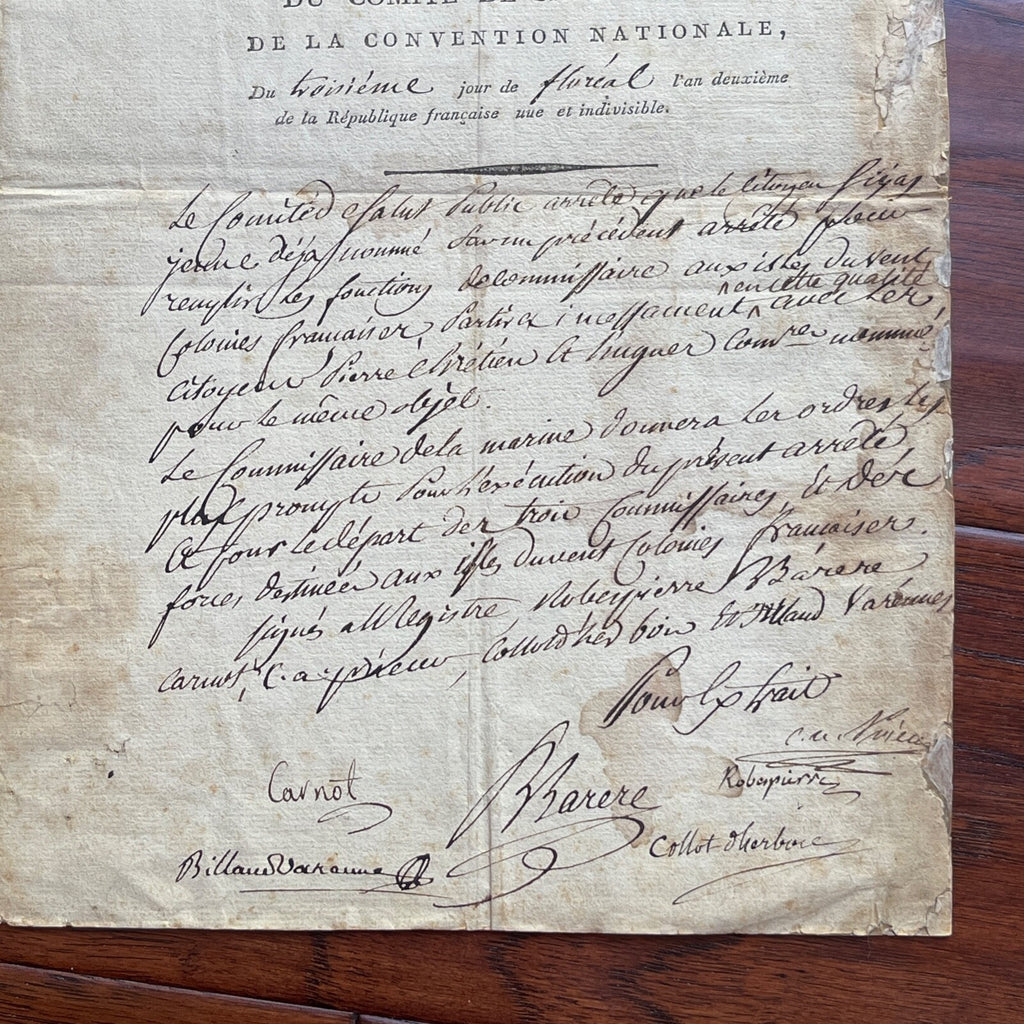 DU COMITÉ DE
DE LA CONVENTION NATIONALE,
Du troisiéme jour de floréal l'an deuxième
de la République française une et indivisible.
Le Comité de Salut Public arrête que le Citoyen Sijas
jeune déja nommé par un précédent arrêté pour
remplir les fonctions de commissaire aux isles du vent
en cette qualité
Colonies francaises, partira incessament avec les
Citoyens Pierre Chrétien et hugues Comres nommés
pour le même objet.
Le Commissaire de la marine donnera les ordres les
plus prompts pour l'exécution du présent arrêté
et pour le départ des trois Commissaires, et des
forces destinées aux isles du vent Colonies francaises.
signés au Registre Robespierre, B Barere
carnot, C. a. prieur, Collot d'herbois et Billaud Varennes
Pour Extrait
C. a. Prieur
Carnot
B Barere
Robespierre
Billaud Varenne
Collot d'herbois